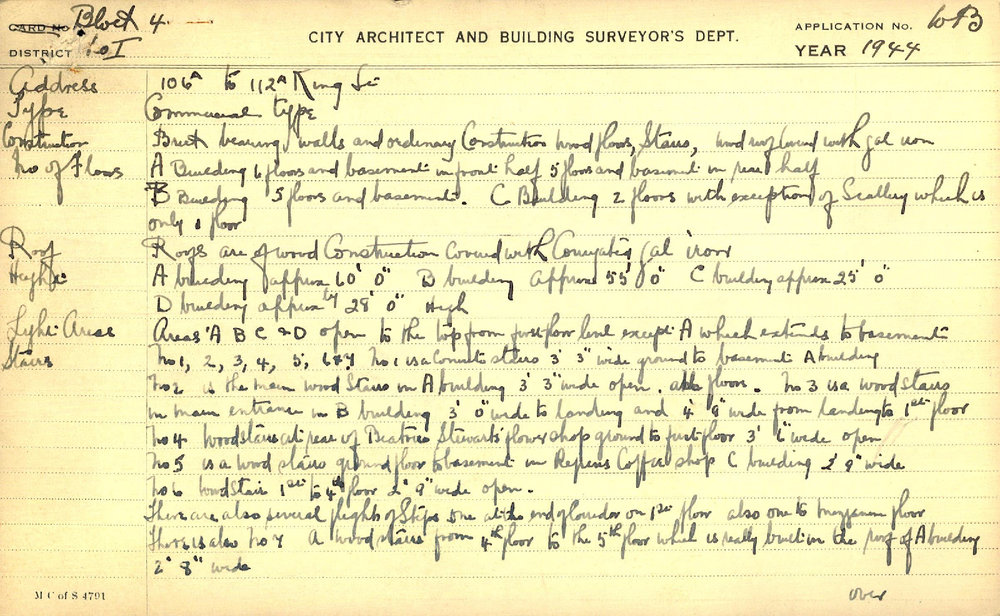 CARD No. Block 4
DISTRICT 101
CITY ARCHITECT AND BUILDING SURVEYOR'S DEPT.
APPLICATION No. WB
YEAR 1944
Address 106A to 112A King St
Type Commercial type
Construction Brick bearing walls and ordinary Construction wood floors, Stairs, wood roof covered with gal iron
No of Floors A Building 6 floors and basement in front half 5 floors and basement in rear half
B Building 5 floors and basement. C Building 2 floors with exception of Scullery which is
only 1 floor
Roof Roofs are of wood Construction covered with Corrugated gal iron
Height A building approx 60' 0" B building approx 55' 0" C building approx 25' 0"
D building approx 28' 0" High
Light Areas Areas A B C & D open to the top from first floor level except A which extends to basement
Stairs No 1, 2, 3, 4, 5, 6 & 7 No 1 is a Concrete stairs 3' 3" wide ground to basement A building
No 2 is the main wood Stairs in A building 3' 3" wide open. all floors. No 3 is a wood stairs
in main entrance in B building 3' 0" wide to landing and 4' 9" wide from landing to 1st floor
No 4 Wood stairs at rear of Beatrice Stewarts flower shop ground to first floor 3' 6" wide open
No 5 is a wood stairs ground floor to basement in Repins Coffee shop C building 2' 9" wide
No 6 Wood Stair 1st to 4th floor 2' 9" wide open.
There are also several flights of Steps one at the end of corridor on 1st floor also one to mezzanine floor
There is also No 7 A wood stairs from 4th floor to the 5th floor which is really built in the roof of A building
2' 8" wide
M C of S 4791
over